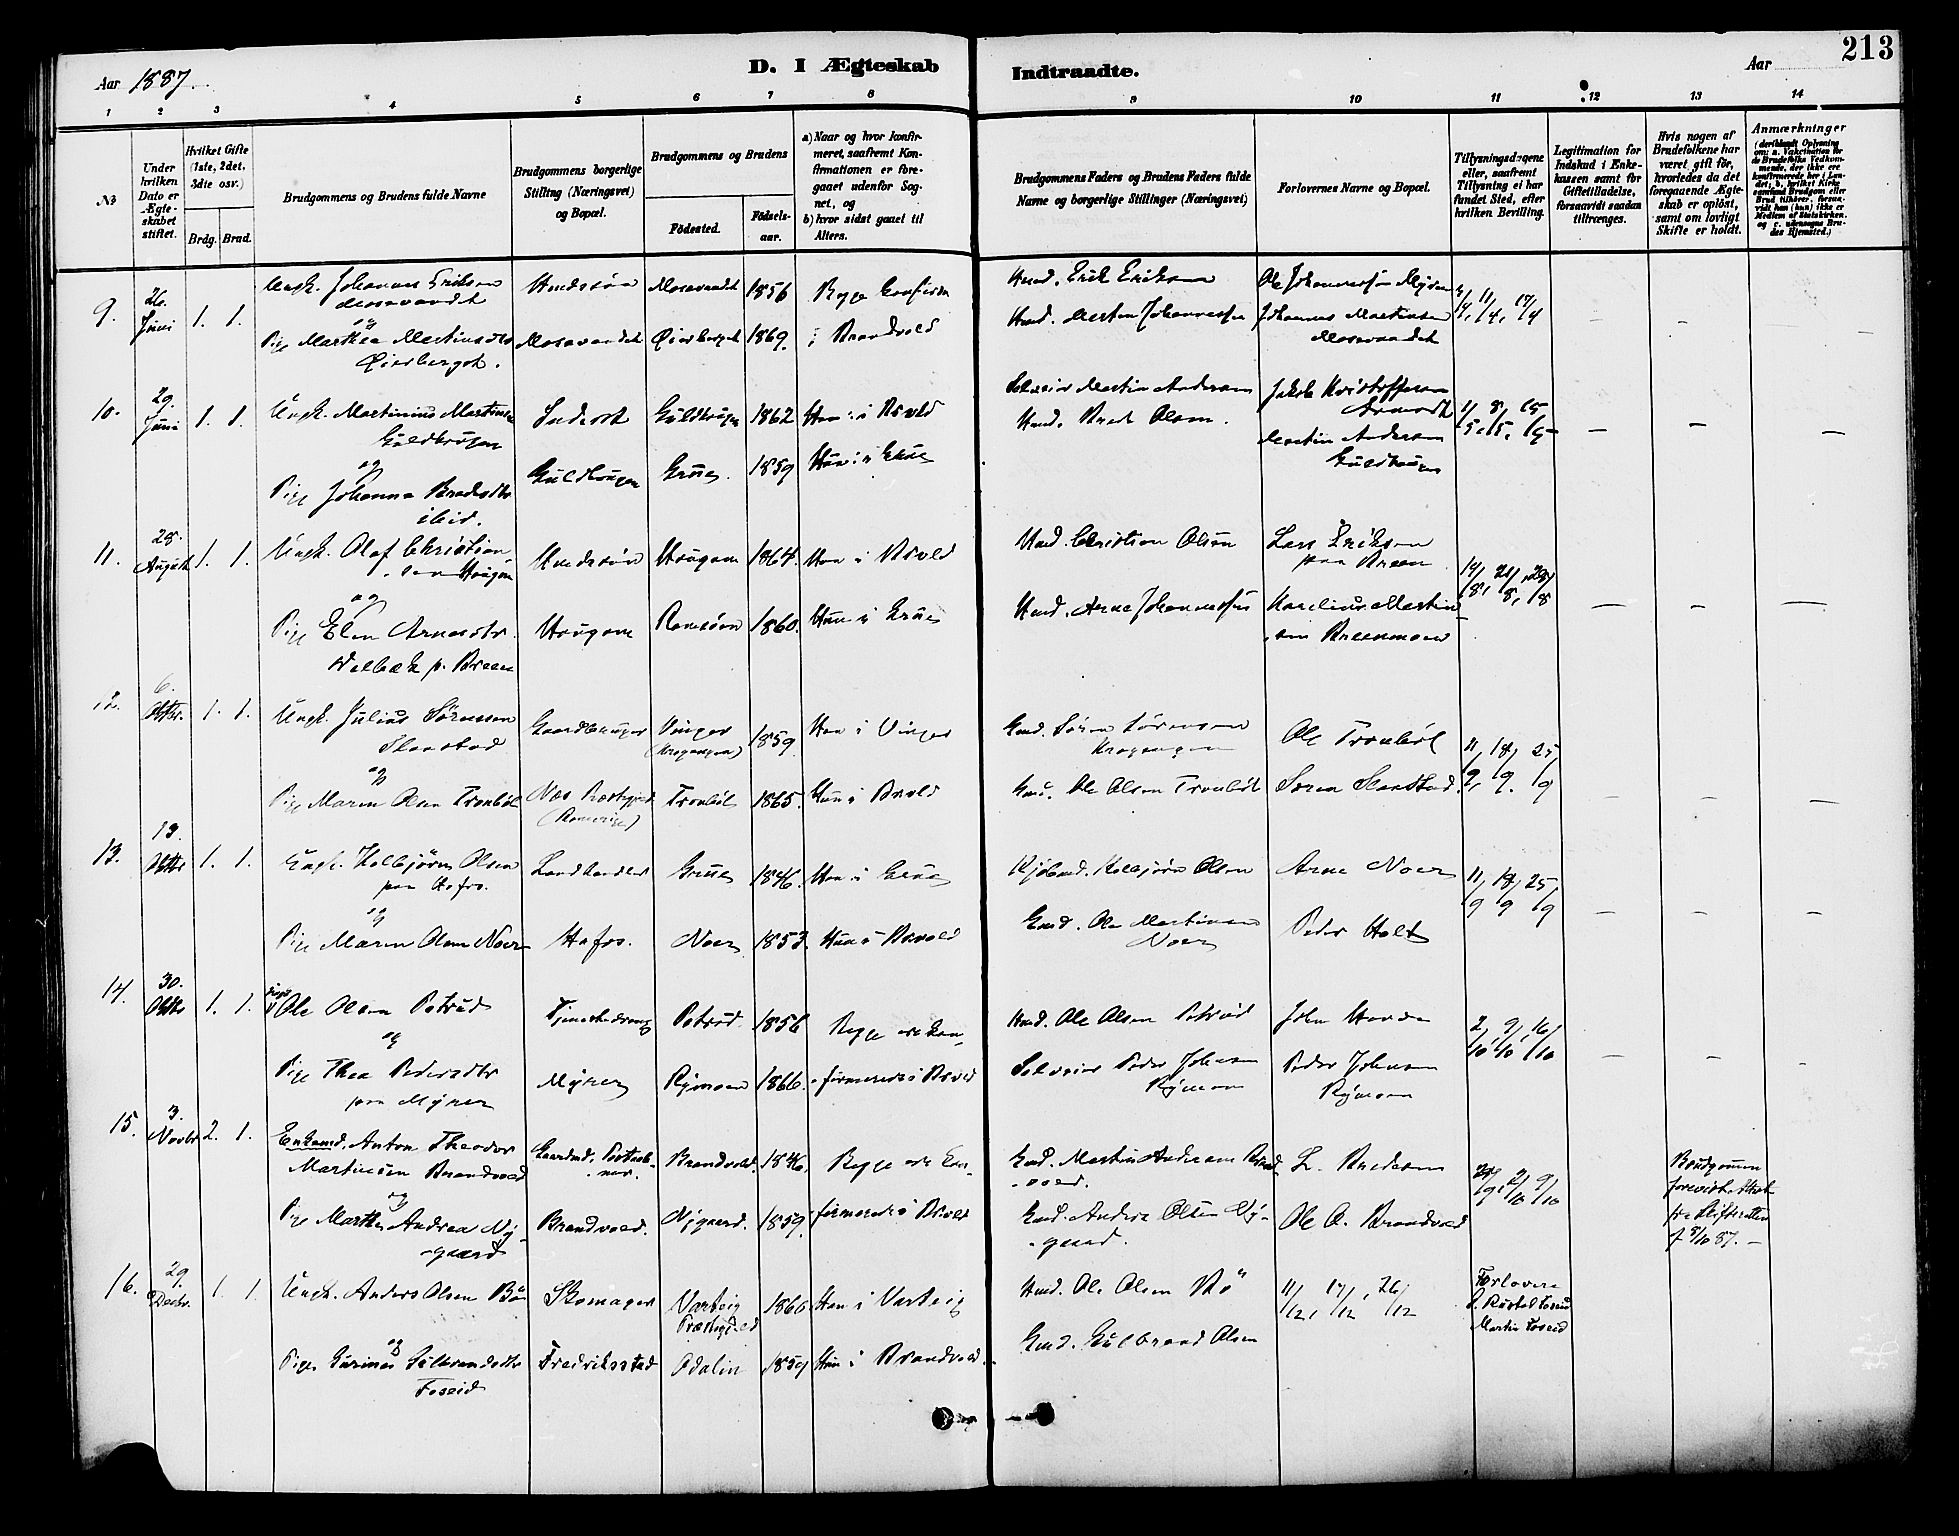 Aar 1887.
D. I Ægteskab
Indtraadte.
Aar
213
1
2
3
4
5
6
7
8
9
10
11
12
13
14
No
Under hvilken Dato er Ægteskabet stiftet.
Hvilket Gifte (1ste, 2det, 3die osv.)
Brdg.
Brud.
Brudgommens og Brudens fulde Navne
Brudgommens borgerlige Stilling (Næringsvei) og Bopæl.
Brudgommens og Brudens
Fødested.
Fødselsaar.
a) Naar og hvor konfirmeret, saafremt Konfirmationen er foregaaet udenfor Sognet, og
b) hvor sidst gaaet til Alters.
Brudgommens Faders og Brudens Faders fulde Navne og borgerlige Stillinger (Næringsvei)
Forlovernes Navne og Bopæl.
Tillysningsdagene eller, saafremt Tillysning ei har fundet Sted, efter hvilken Bevilling.
Legitimation for Indskud i Enkekassen samt for Giftetilladelse, forsaavidt saadan tiltrænges.
Hvis nogen af Brudefolkene har været gift før, hvorledes da det foregaaende Ægteskab er opløst, samt om lovligt Skifte er holdt.
Anmærkninger
9.
26. Juni
1. 1.
Ungk. Johannes Eriksen
Mosevandet
og
Pige Marthea Martinsdtr
Øiersberget.
Husmand
Mosevandet
Mosevandet
Øiersberget
1856
1869.
Begge Confirm
i Brandvold
Husm. Erik Eriksen
Husm. Morten Johannessen
Ole Johannessen Myren
Johannes Martinsen
Mosevandet
4/4, 11/4, 17/4
10.
29. Juni
1. 1.
Ungk. Martinius Martinsen
Guldhaugen
og
Pige Johanna Bredesdtr
ibid.
Inderst
Guldhaugen
Guldhaugen
Grue
1862
1859
Han i Brvold
Hun i Grue
Selveier Martin Andersen
Husm. Brede Olsen.
Jakob Kristoffersen
Martin Andersen
Guldhaugen
1/5, 8/5, 15/5
11.
28. August
1. 1.
Ungk. Olaf Christiansen Haugen
og
Pige Elen Arnesdtr
Velbæk p. Breen
Husmand
Haugen
Haugen
1864.
1860.
Han i Brvold
Hun i Grue
Husm. Christian Olsen
Husm. Arne Johannessen
Lars Eriksen
paa Breen
Karelius Martinsen Breenmoen
14/8, 21/8, 28/8
12.
6. Oktbr.
1. 1.
Ungk. Julius Sørensen
Slaastad
og
Pige Maren Olsen Tronbøl
Gaardbruger
Næs Præstegjeld
(Romerige)
Vinger
Tronbøl
1859
1865.
Han i Vinger
Hun i Brvold
Gmd. Søren Sørensen
Gmd. Ole Olsen Tronbøl
Ole Tronbøl
Søren Slaastad.
11/9, 18/9. 25/9
13.
13. Oktbr
1. 1.
Ungk. Kolbjørn Olsen
paa Hofos.
og
Pige Maren Olsen Noer
Landhandler
Hofos.
Grue
Noer
1846.
1853.
Han i Grue
Hun i Brvold
Kjøbmd. Kolbjørn Olsen
Gmd. Ole Martinsen
Noer
Arne Noer
Peder Holt
11/9 18/9 25/9
14.
30. Oktbr
1. 1.
Ole Olsen Petrud
og
Pige Thea Pedersdtr
paa Myrer
Myrer
Petrud
Rymoen
1856
1866.
Begge ere konfirmerede i Brvold
Husm. Ole Olsen Petrud
Selveier Peder Johnsen
Rymoen
John
Peder Johnsen
Rymoen
2/10, 9/10, 16/10
15.
3. Novbr
2. 1.
Enkemd. Anton Theodor
Martinsen Brandvold
og
Pige Marthe Andrea Nygaard
Gaardmd.
Brandvold.
Brandvold.
Nygaard.
1846.
1859.
Begge ere Konfirmerede i Brvold
Gmd. Martin Andersen Brandvold.
Gmd. Anders Olsen Nygaard.
L. Bredesen
Ole A. Brandvold
25/9, 2/10 9/10
Brudgommen
forevist Attest
fra Skifteretten
af 8/10 87.
16.
29. Decbr.
1. 1.
Ungk. Anders Olsen Bø
og
Pige Gurine Gulbrandsdtr
Foseid
Skomager
Fredriksstad
Varteig
Præstegjeld
Odalen
1860
1859
Han i Varteig
Hun i Brandvold.
Husm. Ole Olsen Bø
Gmd. Gulbrand Olsen
11/12, 17/12, 26/12
Forlovere
Martin Foseid